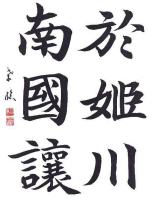 於姫川
南國讓